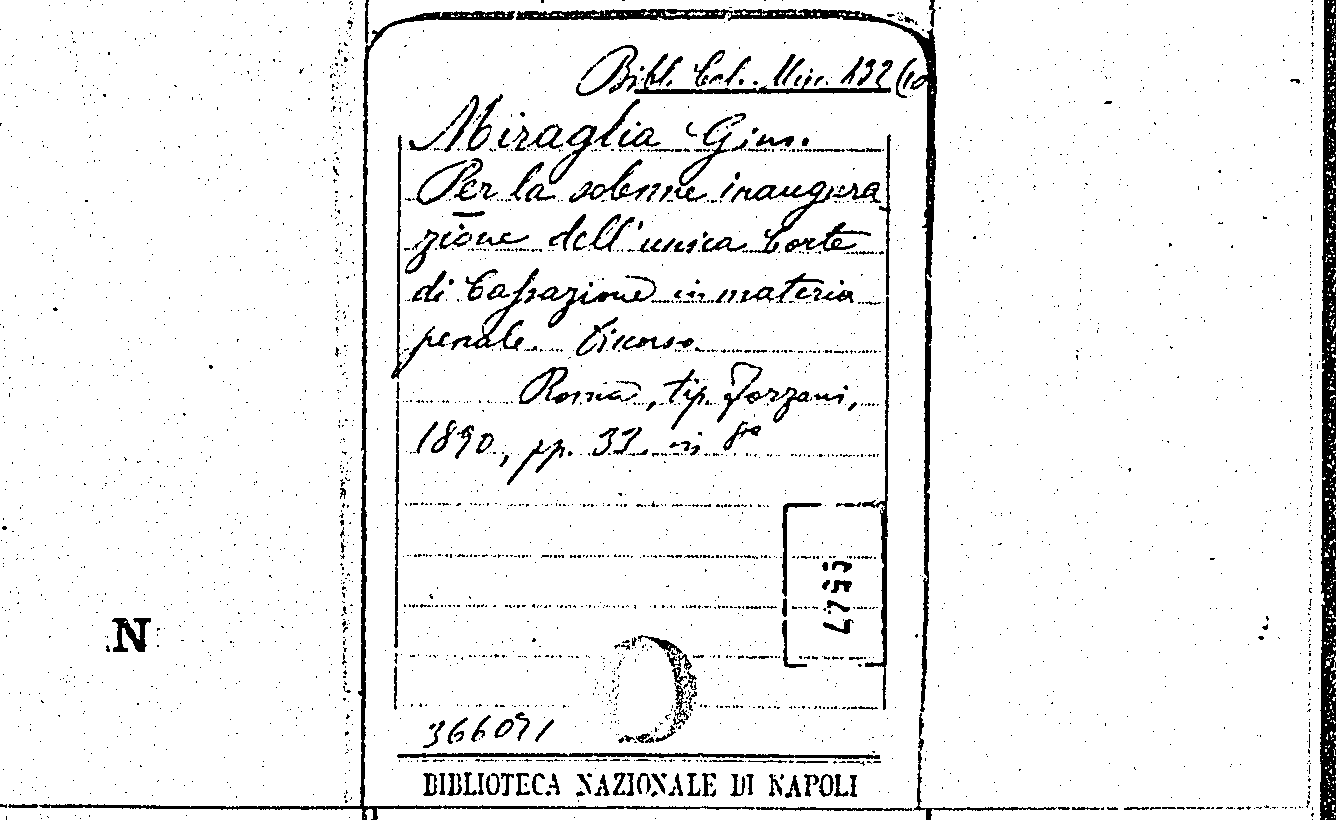 Bibl. Cal. Mis. 132 (10
Miraglia Gius.
Per la solenne inaugura
zione dell'unica Corte
di Cassazione in materia
penale. Discorso.
Roma, tip. Forzani,
1890, pp. 33. in 8º
N
366091
BIBLIOTECA NAZIONALE DI NAPOLI